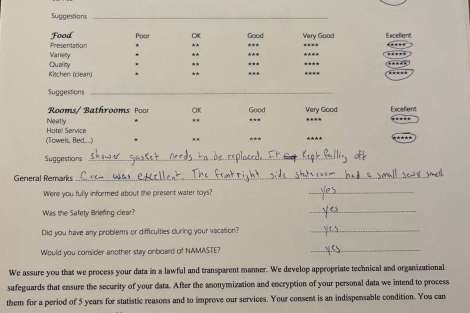 Suggestions
Food Poor OK Good Very Good Excellent
Presentation * ** *** **** *****
Variety * ** *** **** *****
Quality * ** *** **** *****
Kitchen (clean) * ** *** **** *****
Suggestions
Rooms/ Bathrooms Poor OK Good Very Good Excellent
Neatly * ** *** **** *****
Hotel Service
(Towels, Bed,...) * ** *** **** *****
Suggestions shower gasket needs to be replaced. It kept falling off
General Remarks Crew was excellent. The front right side stateroom had a small sewer smell
Were you fully informed about the present water toys? yes
Was the Safety Briefing clear? yes
Did you have any problems or difficulties during your vacation? yes
Would you consider another stay onboard of NAMASTE? yes
We assure you that we process your data in a lawful and transparent manner. We develop appropriate technical and organizational
safeguards that ensure the security of your data. After the anonymization and encryption of your personal data we intend to process
them for a period of 5 years for statistic reasons and to improve our services. Your consent is an indispensable condition. You can